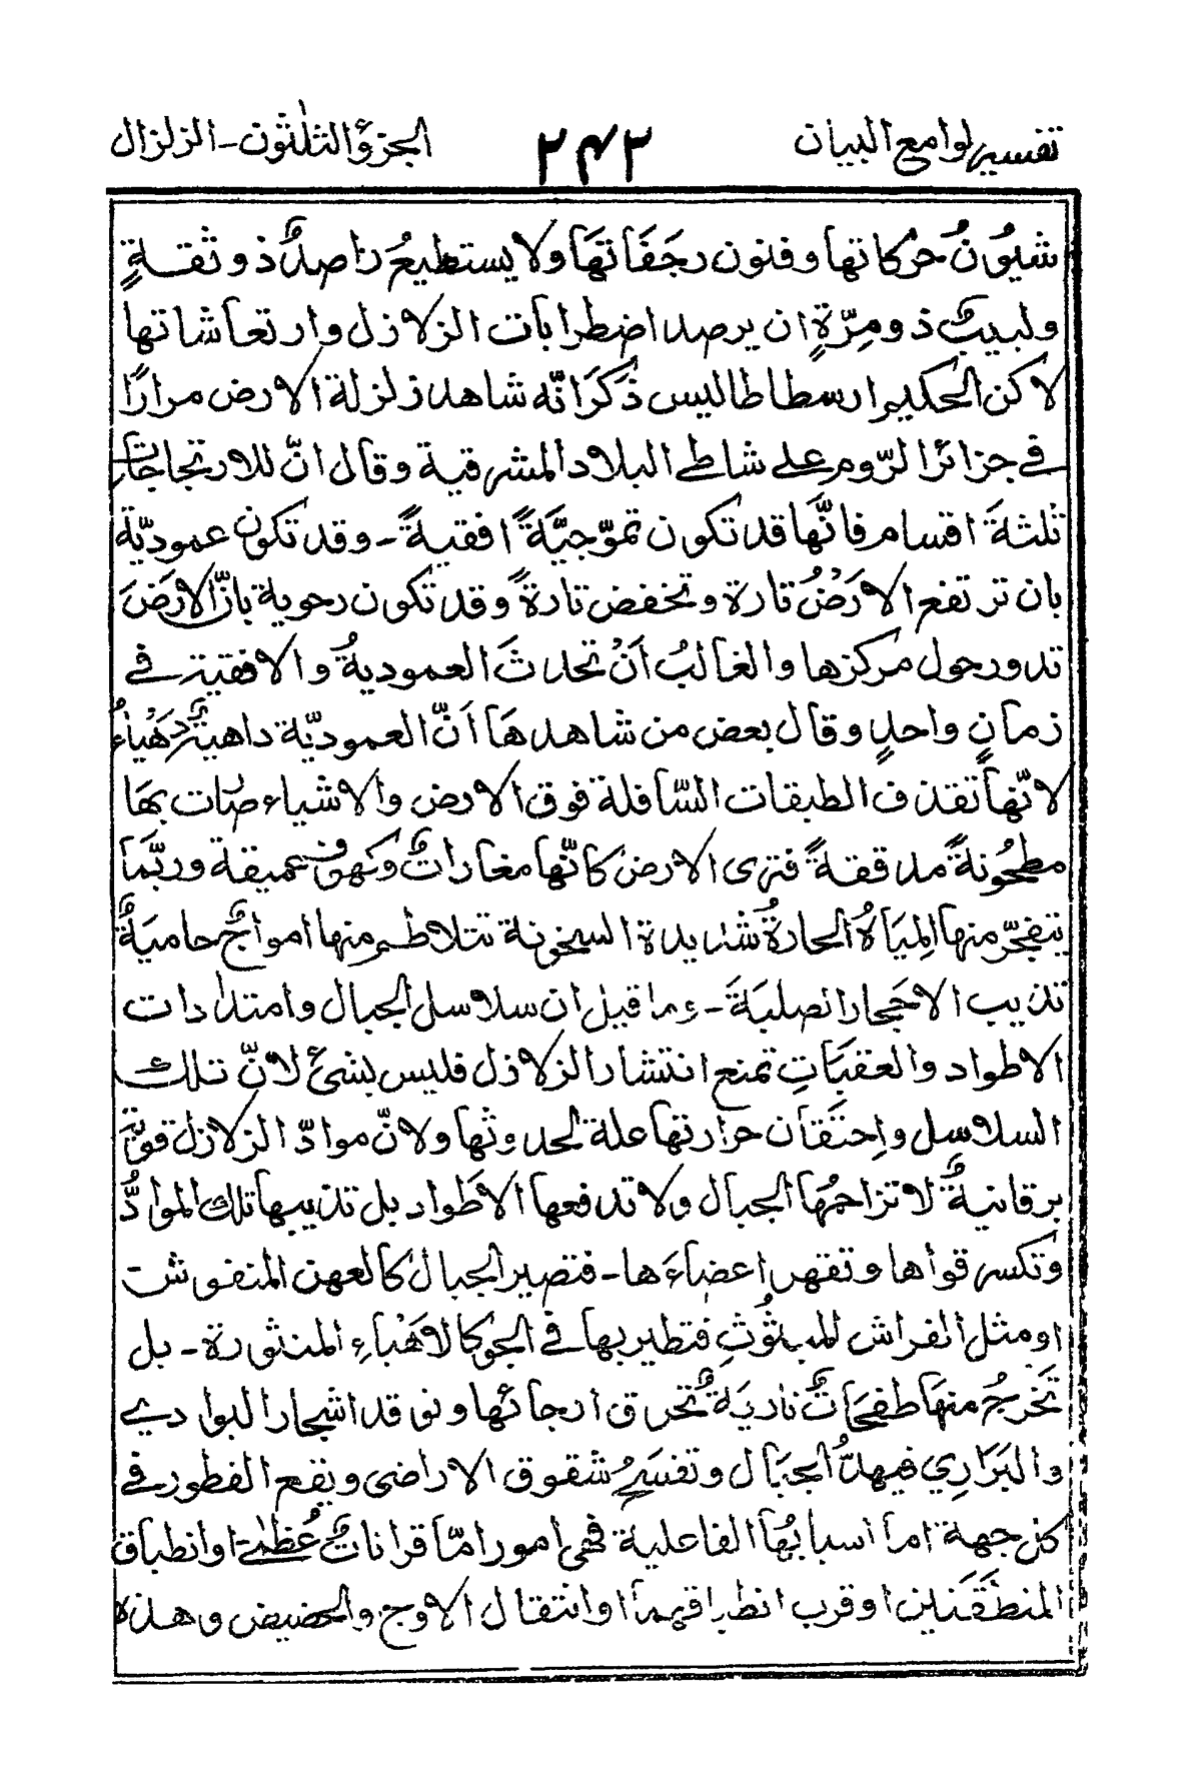 تفسير لوامع البيان ٢٤٢ الجزؤالثلٰثون-الزلزال
شيئونُ حركاتها وفنون رجَفَاتهَا ولا يستطيعُ راصدٌ ذو ثقةٍ
ولبيبٌ ذومِرّةٍ ان يرصد اضطرابات الزلازل وارتعاشاتها
لاكن الحكيم ارسطاطاليس ذَكَرَ انّه شاهد زلزلة الارض مرارًا
فى جزائر الرّوم على شاطے البلاد المشرقية وقال انّ للارتجاجات
ثلثةَ اقسام فانّهَا قد تكون تموّجيَّةً افقيةً - وقد تكون عموديّة
بان ترتفع الارَضُ تارة وتخفض تارةً وقد تكون رحوية بانّ الارَضَ
تدور حول مركزها والغالبُ انْ تحدثَ العموديةُ والافقية فے
زمانٍ واحدٍ وقال بعض من شاهدهَا اَنّ العموديّة داهيةٌ دَهْيَاءُ
لانّها تقذف الطبقات السّافلة فوق الارض والاشياء صات بهَا
مطحُونةً مدققةً فترى الارض كانّها مغاراتٌ وكهوف عميقة وربّما
يتفجّر منها المِيَاهُ الحارةُ شديدة السخونة تتلاطم منها امواجٌ حاميَةٌ
تذيب الاحَجار الصلبَةَ - وما قيل ان سلاسل الجبال وامتدادات
الاطواد والعقبَاتِ تمنع انتشار الزلازل فليس بشئ لانّ تلك
السلاسل واِحتَقان حرارتها علة لحدوثها ولانّ موادّ الزلازل قويّة
برقانيةٌ لا تزاحمُها الجبال ولا تدفعها الاَطواد بل تذيبها تلك الموادُّ
وتكسر قواها وتقهر اعضَاءَها - فتصير الجبال كالعهن المنفوش
او مثل الفراش المبثُوثِ فتطير بها فى الجوّ كالاهْبَاءِ المنثورة - بل
تَخرجُ منهَا طفحَاتٌ ناريَةٌ تُحرق ارجائها وتوقد اشجار البوادے
والبَرَارِي فيهدُّ الجبَال وتفسَحُ شقوق الاراضى ويقع الفطور فے
كل جهة اما اسبابُها الفاعلية فهى امور امّا قراناتٌ عُظمىٰ او انطباق
المنطَقَتين او قرب انطباقهما او انتقال الاوج والحضيض وهذه